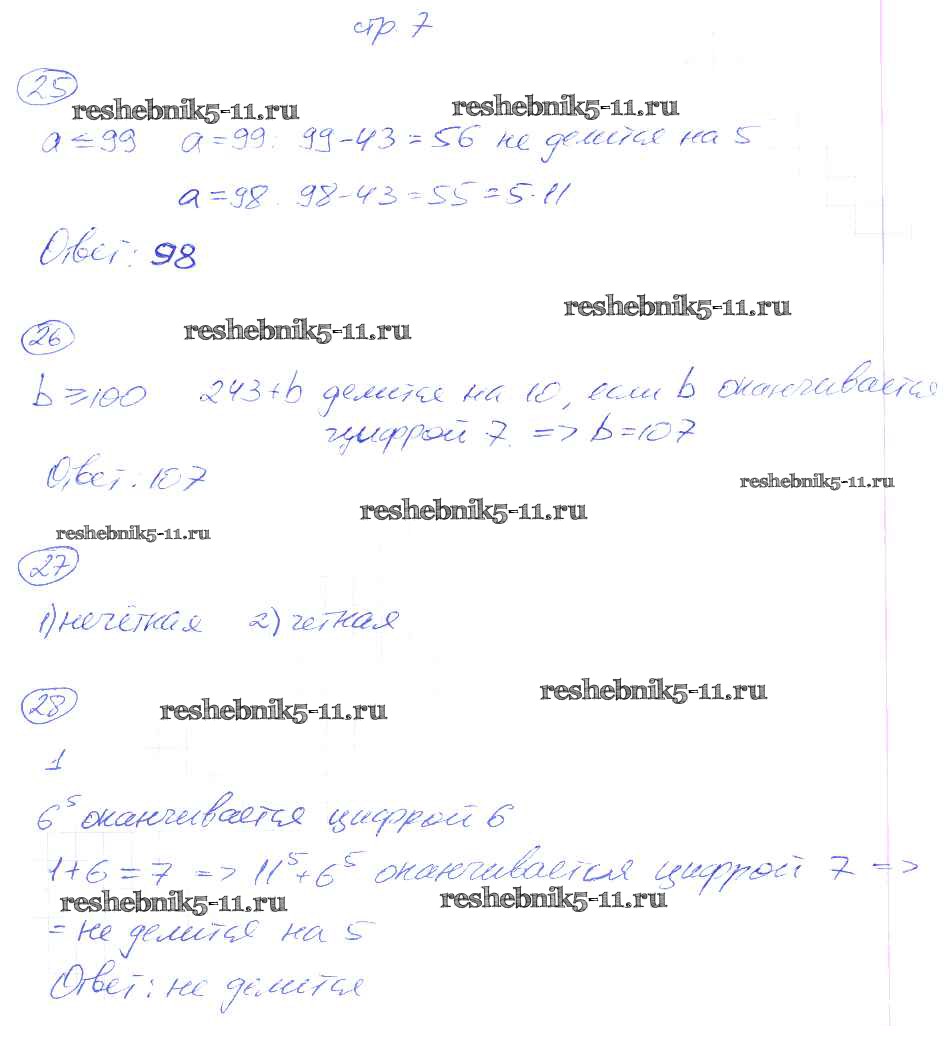 стр. 7
25
reshebnik5-11.ru reshebnik5-11.ru
a ≤ 99 a = 99: 99-43 = 56 не делится на 5
a = 98. 98-43 = 55 = 5·11
Ответ: 98
reshebnik5-11.ru
26 reshebnik5-11.ru
b ≥ 100 243+b делится на 10, если b оканчивается
цифрой 7. => b = 107
Ответ: 107
reshebnik5-11.ru
reshebnik5-11.ru
reshebnik5-11.ru
27
1) нечётная 2) четная
reshebnik5-11.ru
28 reshebnik5-11.ru
1
6⁵ оканчивается цифрой 6
1+6 = 7 => 11⁵+6⁵ оканчивается цифрой 7 =>
reshebnik5-11.ru reshebnik5-11.ru
= не делится на 5
Ответ: не делится